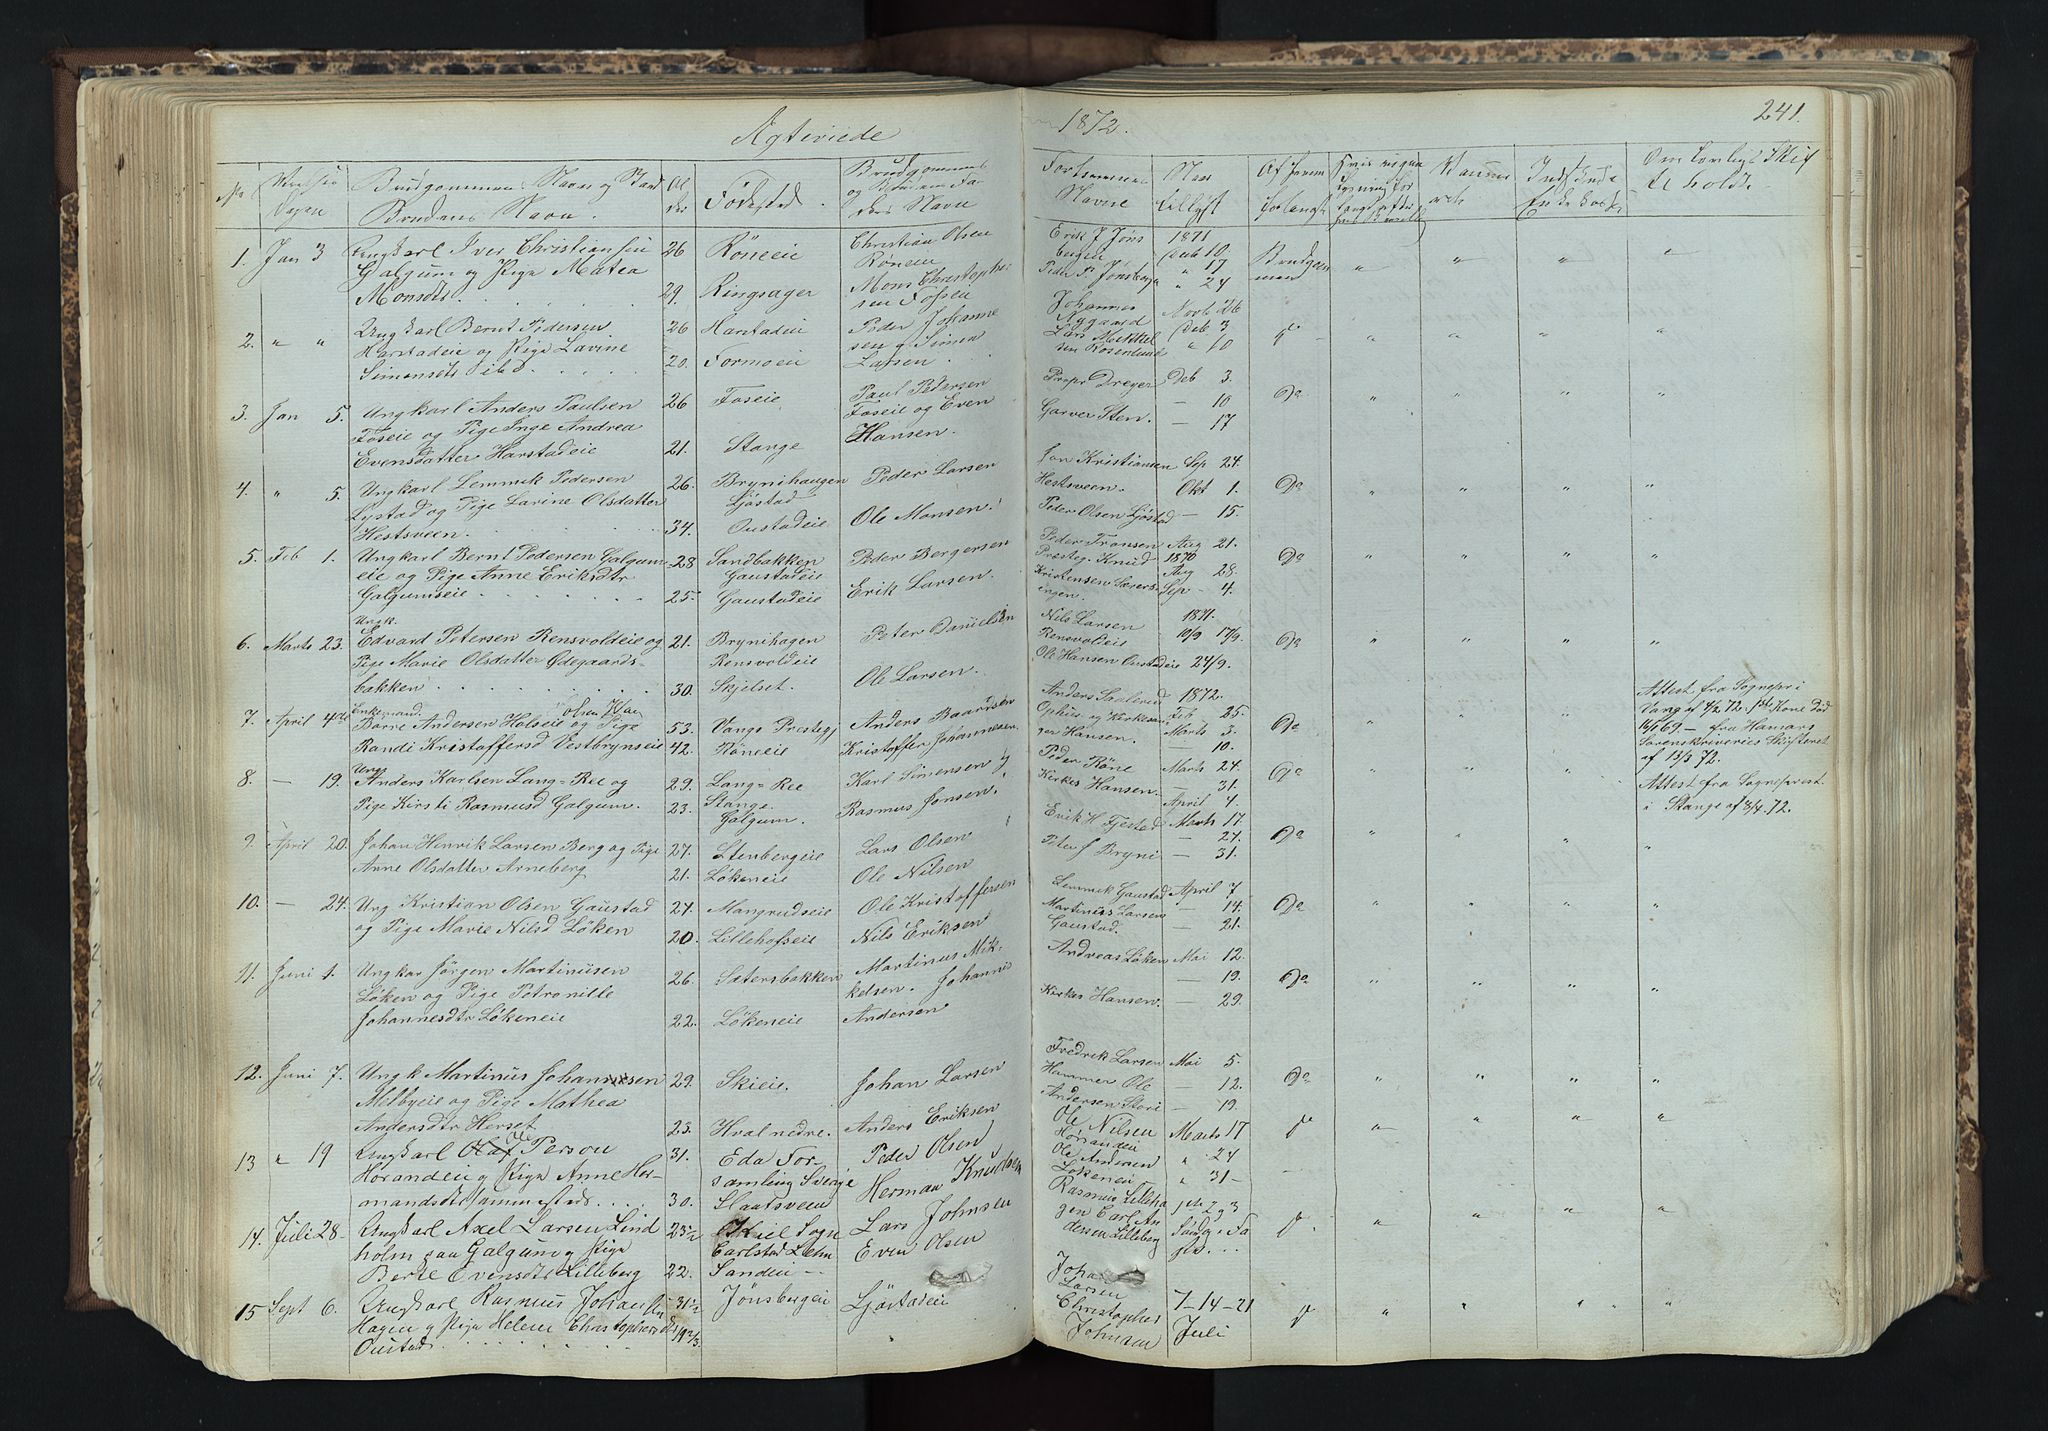 Ægteviede 1872. 241.
No Vielses Dagen Brudgommens Navn og Stand Brudens Navn. Alder Fødested. Brudgommens og Brudens Faders Navn Forlovernes Navne Naar tillyst Af hvem forlangt
Om lovligt Skifte holdt.
1. Jan 3 Ungkarl Iver Christiansen 26 Røneeie Christian Olsen Røneeie Erik J Jøns 1871
Galgum og Pige Matea bergeie Deb 10 Brudgommen " " " "
Monsdtr. 29. Ringsager Mons Christophersen Fossen Peder P. Jønsberg " 17 " 24
2. " " Ungkarl Bernt Pedersen 26 Harstadeie Peder Johannesen Johannes Nygaard Novb 26
Harstadeie og Pige Lavine sen og Simen Lars Mikkel Deb 3 " " " "
Simensdtr ibd. 20. Formoeie Larsen. sen Rosenlund " 10
3. Jan 5. Ungkarl Anders Paulsen 26 Foseie Paul Pedersen Propr Dreyer Deb 3. Do " " " "
Foseie og Pige Inge Andrea Foseie og Even Garver Sten. — 10
Evensdatter Harstadeie 21. Stange Hansen. — 17
4. " 5. Ungkarl Lemmik Pedersen 26. Brynihaugen Peder Larsen Jon Kristiansen Sep 24. Do " " " "
Lystad og Pige Larine Olsdatter Ljøstad Hestsveen. Okt 1.
Hestsveen. 34. Oustadeie Ole Monsen. Peder Olsen Ljøstad — 15.
5. Feb 1. Ungkarl Bernt Pedersen Galgum- 28 Sandbakken Peder Bergersen Peder Fransen Aug 21. Do " " " "
eie og Pige Anne Eriksdtr Gaustadeie Præsteg. Knud 1870 Aug 28.
Galgumseie 25. Gaustadeie Erik Larsen. Kristensen Sep — 4.
Ungk.
6. Marts 23. Edvard Petersen Rensvoldeie og 21. Brynihagen Peter Danielsen Nils Larsen 1871. Do " " " "
Pige Marie Olsdatter Ødegaards- Rensvoldeie Rensvoldeie 10/9 17/9.
bakken 30. Skjelset. Ole Larsen. Ole Hansen Oustadeie 24/9.
Enkemand. Olsen
7. April 4de Børre Andersen Helseie og Pige 53. Vangs Prestegj Anders Baardsen Anders 1872. Feb 25. Do " " " Attest fra Sognepr i
Randi Kristoffersd Vestbrynseie 42. Røneeie Kristoffer Johannesen. Ophus. og Kirkesanger Hansen. Marts 3. — 10. Vang af 4/2 72. Kone død
14/6 69 — fra Hamars
Sorenskriveries Skifteret
af 13/3 72.
Ung
8. — 19. Anders Karlsen Lang-Ree og 29. Lang-Ree Karl Simensen og Peder Røne Marts 24. Do " " " Attest fra Sogneprest
Pige Kirsti Rasmusd Galgum. 23. Stange. Galgum. Rasmus Jonsen. Kirkes Hansen. — 31. April 4. i Stange af 3/4 72.
9. April 20. Johan Henrik Larsen Berg og Pige 27. Stenbergeie Lars Olsen Erik H Fjestad Marts 17. Do " " " "
Anne Olsdatter Arneberg 21. Løkeneie Ole Nilsen Peter J Bryni — 24. — 31.
10. — 24. Ung Kristian Olsen Gaustad 27. Mangrudseie Ole Kristoffersen Lemmik Gaustad April 7 Do " " " "
og Pige Marie Nilsd Løken 20. Lillehofseie Nils Eriksen Martinus Larsen — 14.
Gaustad. — 21.
11. Juni 1. Ungkar Jørgen Martinusen 26. Sætersbakken Martinus Mik- Andreas Løken Mai 12.
Løken og Pige Petronille kelsen. Johannes — 19. Do " " " "
Johannesdtr Løkeneie 22. Løkeneie Andersen Kirkes Hansen. — 29.
12. Juni 7. Ungk Martinus Johannesen 29. Skieie. Johan Larsen Fredrik Larsen Mai 5. Do " " " "
Melbyeie og Pige Mathea Hammer Ole — 12.
Andersdtr Herset 23. Hval nedre. Anders Eriksen Andersen Stori — 19.
13 " 19 Ungkarl Olaf Ole Person 31. Eda For Peder Olsen Ole Nilsen Marts 17 " " " "
Horandeie og Pige Anne Her- samling Sverige Herman Knudsen Horandeie Ole Andersen " 24
mandsdtr sammesteds. 30. Slaatsveen Løkeneie " 31—
14. Juli 28— Ungkarl Axel Larsen Lind 23½ Skiel Sogn Lars Johnsen Rasmus Lilleha 1ste 2 og 3
holm paa Galgum og Pige Carlstad Lehn Even Olsen gen Carl An Søndag. Fa " " " "
Berte Evensdtr Lilleberg 22. Sandeie — dersen Lilleberg ste.
15 Sept 6. Ungkarl Rasmus Johansen 31½ Jønsbergeie Ljøstadeie Johan Larsen 7—14—21 " " " "
Hagen og Pige Helene Christophersd 19 2/3 Christopher Juli
Oustad Johnsen